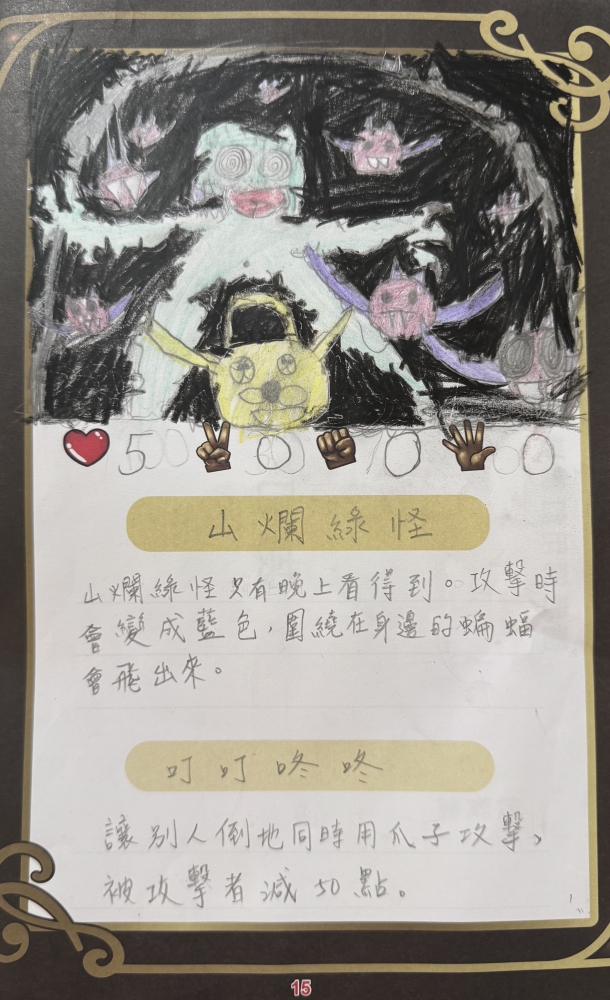 50 0 0 0
山爛綠怪
山爛綠怪只有晚上看得到。攻擊時
會變成藍色，圍繞在身邊的蝙蝠
會飛出來。
叮叮咚咚
讓別人倒地同時用爪子攻擊、
被攻擊者減50點。
15